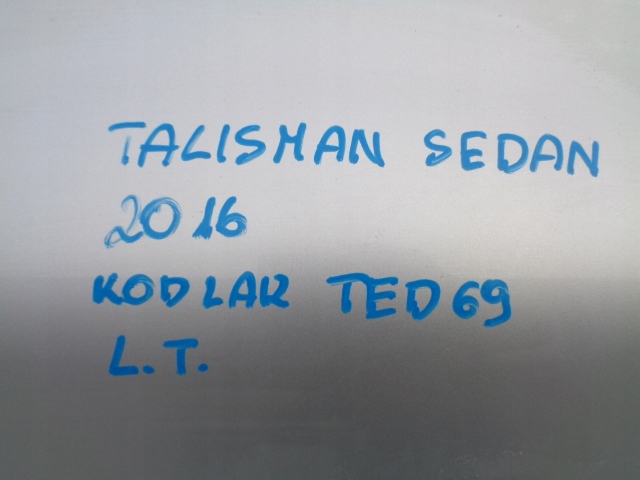 TALISMAN SEDAN
2016
KOD LAK TED69
L.T.